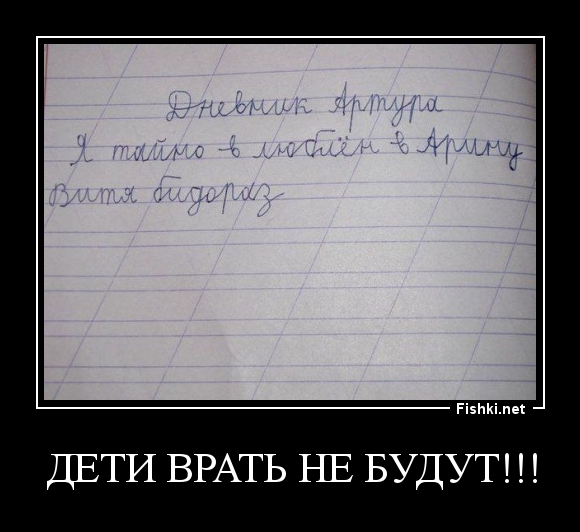 Дневник Артура
Я тайно в люблён в Арину
Витя бидораз
Fishki.net
ДЕТИ ВРАТЬ НЕ БУДУТ!!!